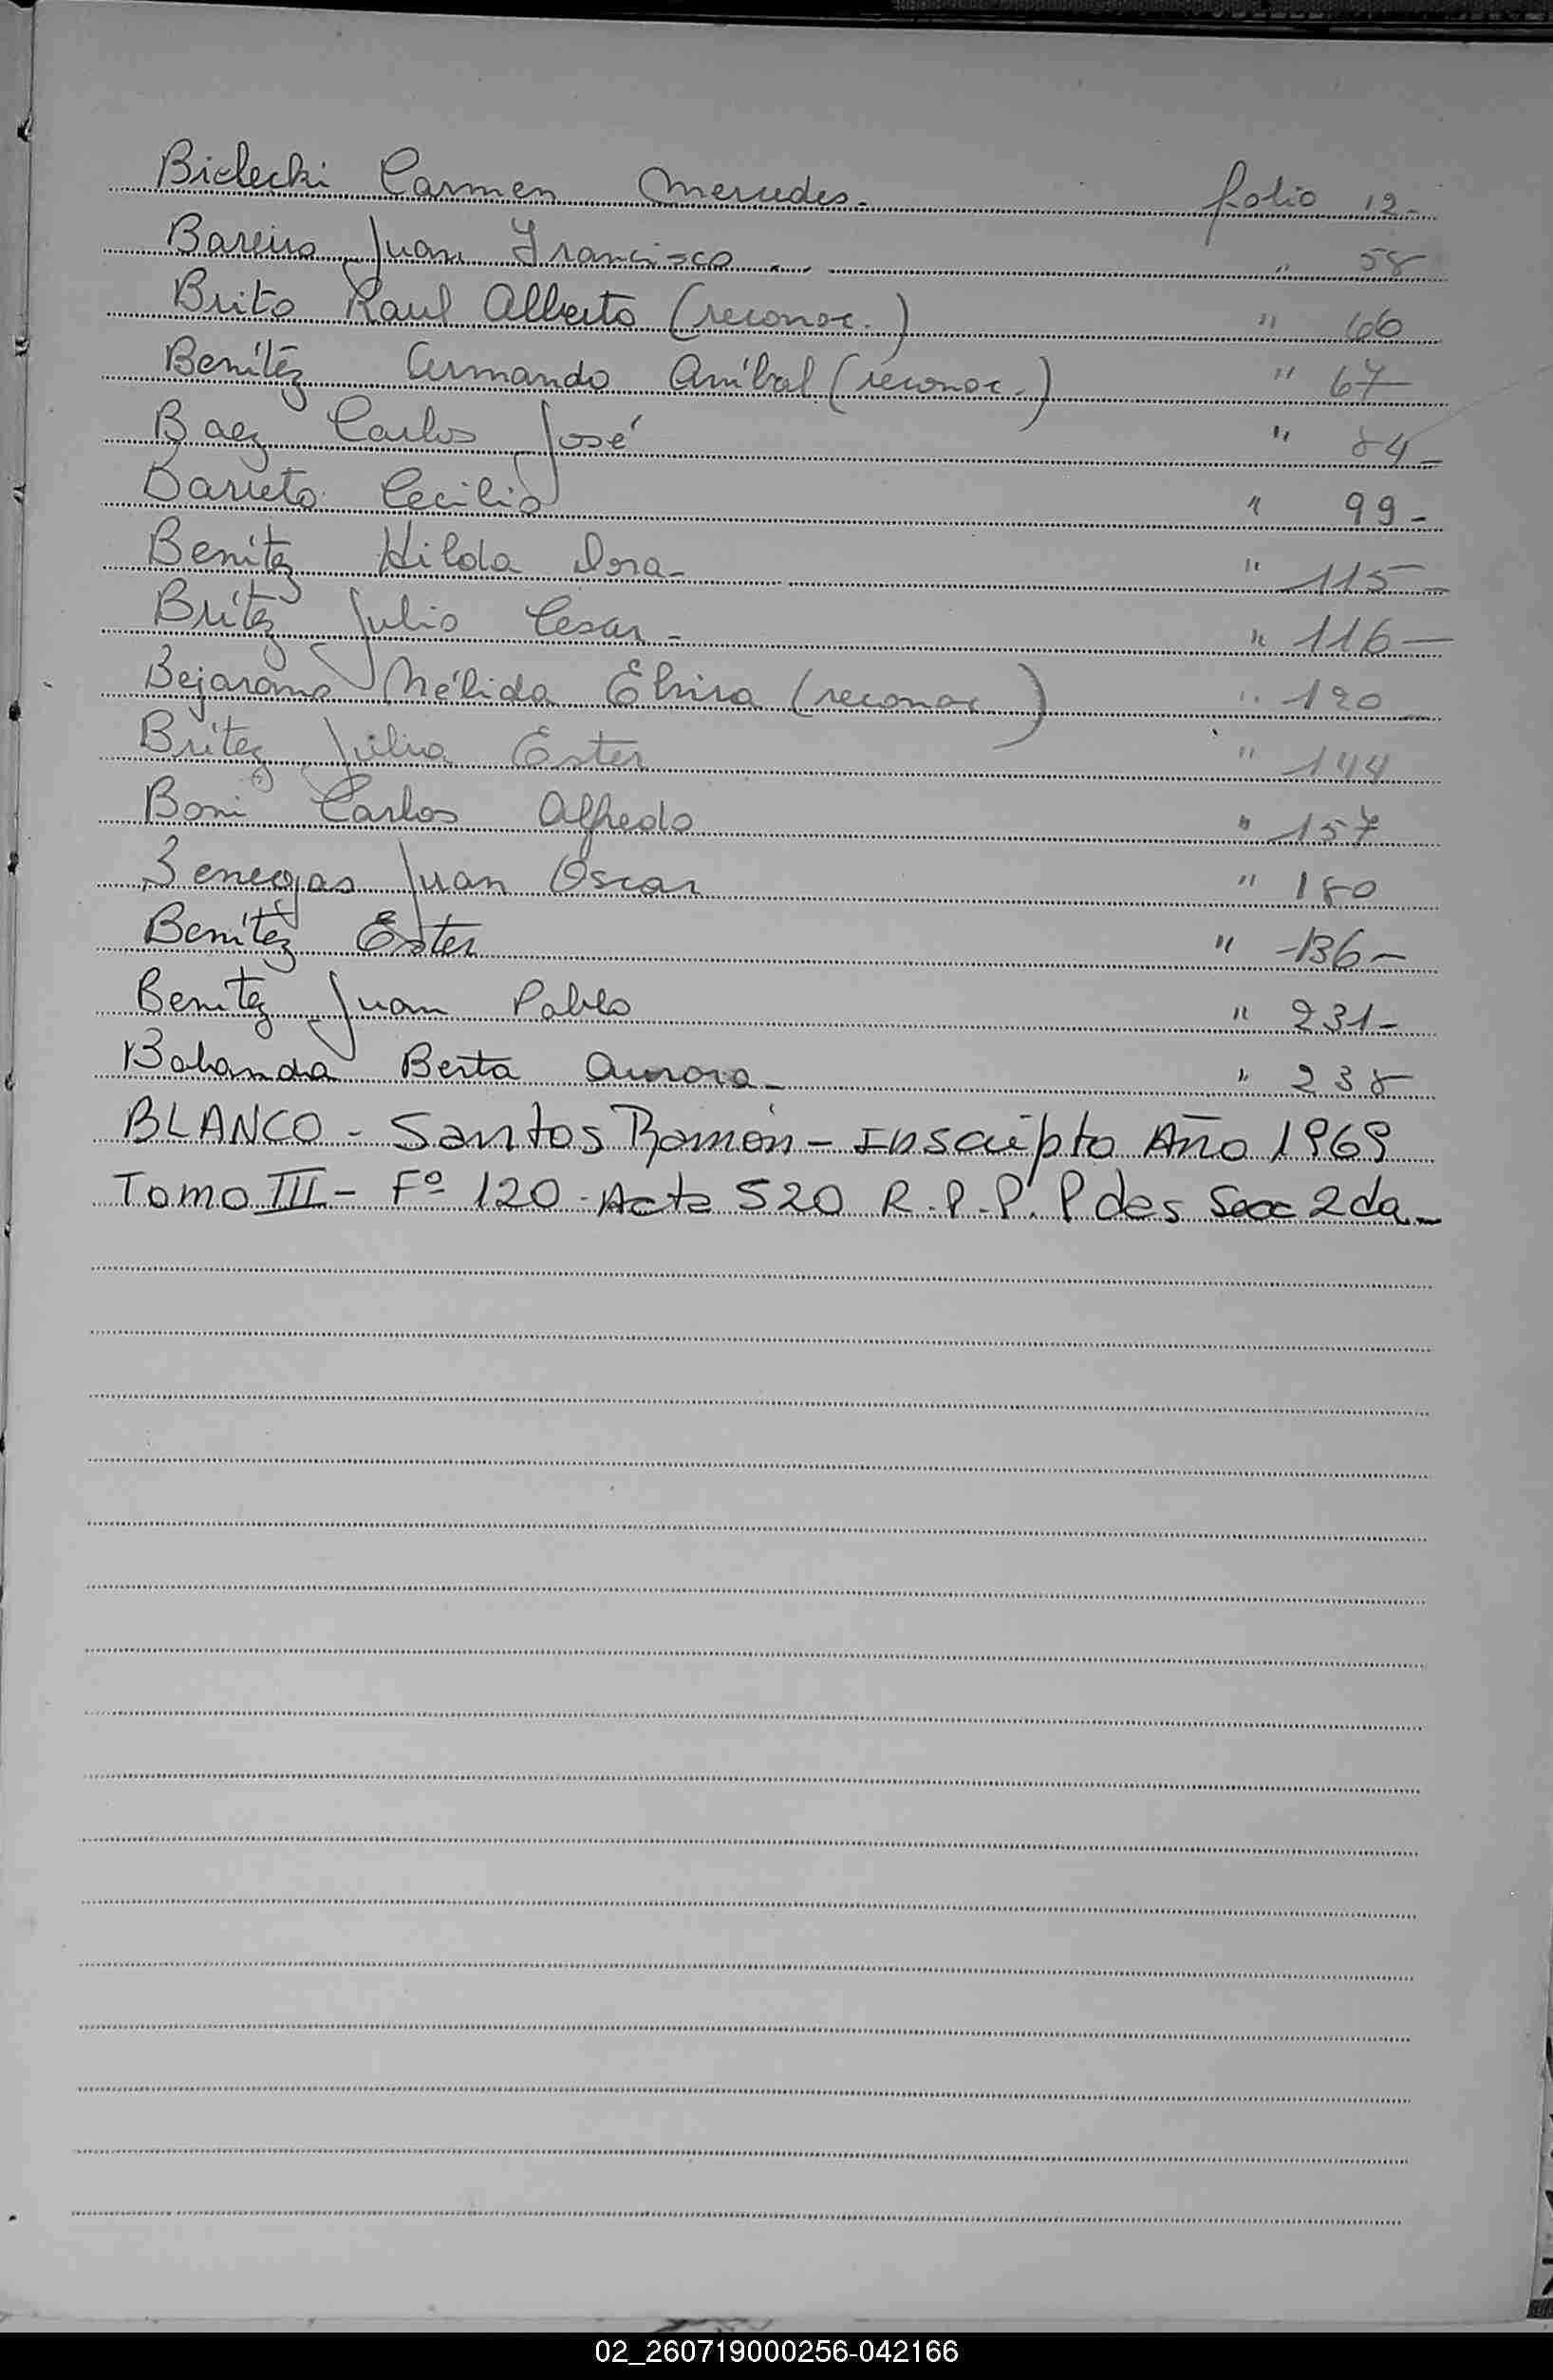 Bielecki Carmen Mercedes- folio 12-
Bareiro Juan Francisco - " 58
Brito Raul Alberto (reconoc.) " 66
Benítez Armando Aníbal (reconoc.) " 67
Baez Carlos José " 84-
Barreto Cecilio " 99-
Benítez Hilda Dora- " 115-
Brítez Julio Cesar- " 116-
Bejarano Nélida Elvira (reconoc.) " 120
Brítez Julia Ester " 144
Boni Carlos Alfredo " 157
Benegas Juan Oscar " 180
Benítez Ester " 136-
Benítez Juan Pablo " 231-
Bobanda Berta Aurora- " 238
BLANCO - Santos Ramón - Inscripto Año 1969
Tomo III - Fº 120 - Acta 520 R.P.P. Pdas Secc 2da.-
02_260719000256-042166